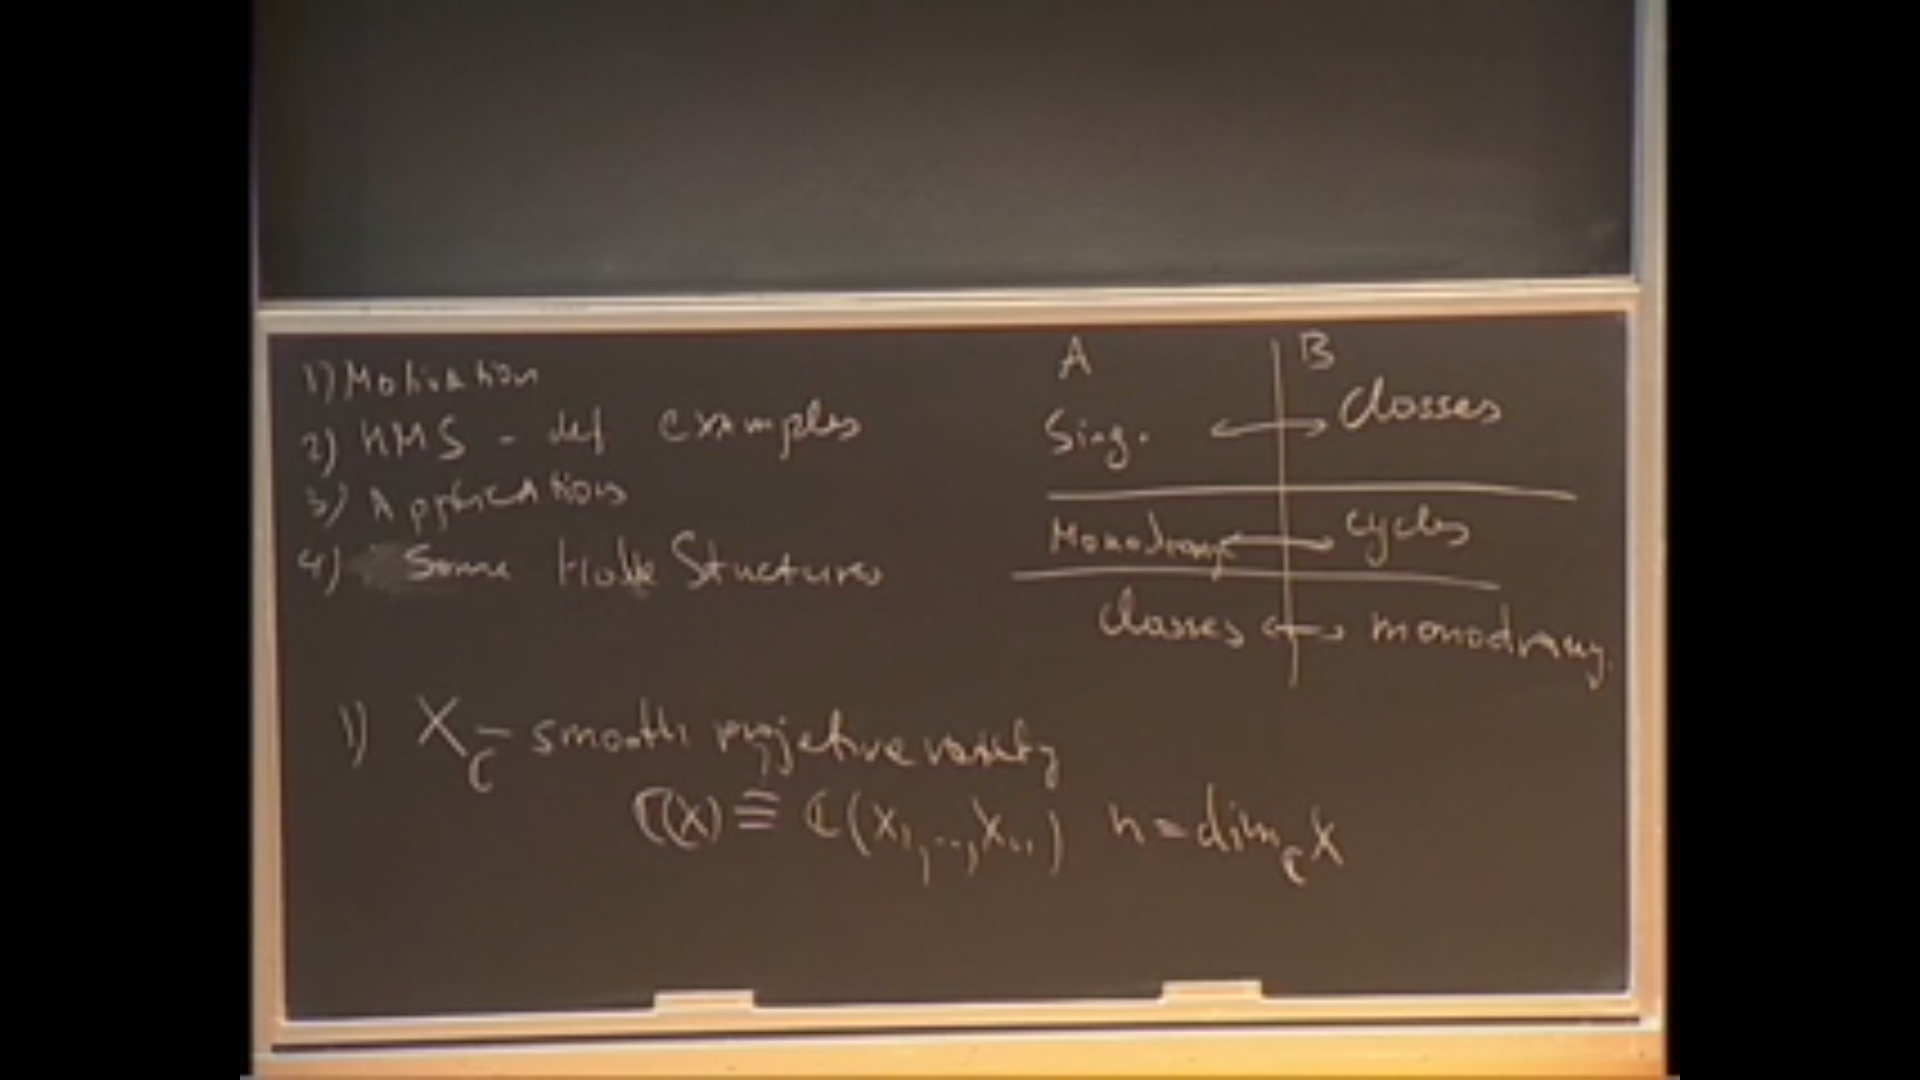 1) Motivation
2) HMS - def examples
3) Applications
4) Some Hodge Structures
A | B
Sing. ↔ Classes
Monodromy ↔ cycles
Classes ↔ monodromy.
1) X_ℂ - smooth projective variety
ℂ(X) ≡ ℂ(x₁, .., xₙ) n = dim_ℂ X